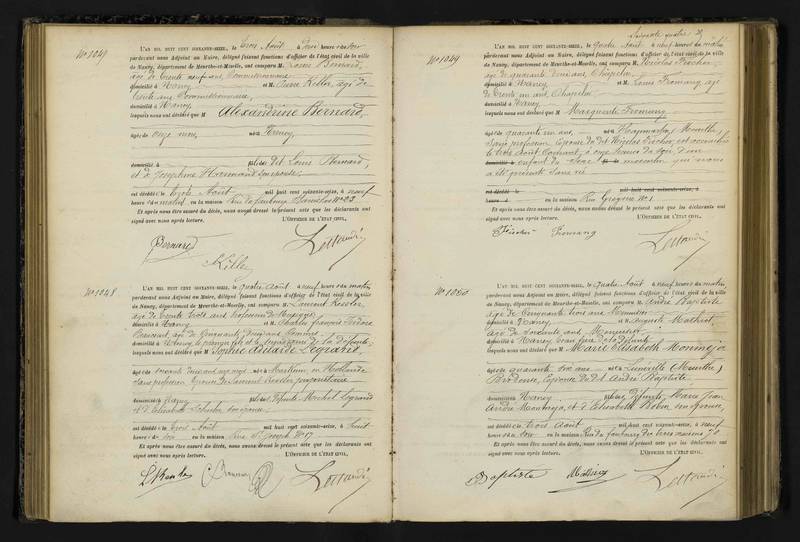 Nº 1047
L'AN MIL HUIT CENT SOIXANTE-SEIZE, le trois Août, à heure du soir
pardevant nous Adjoint au Maire, délégué faisant fonctions d'officier de l'état civil de la ville
de Nancy, département de Meurthe-et-Moselle, ont comparu M. Louis Bernard,
âgé de trente neuf ans, Commissionnaire
domicilié à Nancy et M. Pierre Killer, âgé de
trente ans Commissionnaire,
domicilié à Nancy,
lesquels nous ont déclaré que M Alexandrine Bernard,
âgée de onze mois, née à Nancy
domicilié à fille de dit Louis Bernard,
et de Joséphine Harmand son épouse,
est décédée le trois Août mil huit cent soixante-seize, à neuf
heures du matin, en la maison Rue du faubourg Stanislas Nº 23
Et après nous être assuré du décès, nous avons dressé le présent acte que les déclarants ont
signé avec nous après lecture. L'OFFICIER DE L'ÉTAT CIVIL.
Bernard
Kille
Nº 1048
L'AN MIL HUIT CENT SOIXANTE-SEIZE, le quatre Août à neuf heures du matin
pardevant nous Adjoint au Maire, délégué faisant fonctions d'officier de l'état civil de la ville
de Nancy, département de Meurthe-et-Moselle, ont comparu M. Laurent Kessler
âgé de trente trois ans Professeur de Musique
domicilié à Nancy et M. Charles françois Isidore
âgé de Cinquante
domicilié à Nancy, le premier fils et le de la défunte
lesquels nous ont déclaré que M Sophie Adelaïde Legrand
âgée de soixante née à en Hollande
sans profession Epouse de Laurent Kessler propriétaire
domiciliée à Nancy fille des défunts Michel Legrand
et d'Elisabeth son épouse
est décédée le trois Août mil huit cent soixante-seize, à huit
heures du soir en la maison Rue St Joseph Nº 17
Et après nous être assuré du décès, nous avons dressé le présent acte que les déclarants ont
signé avec nous après lecture. L'OFFICIER DE L'ÉTAT CIVIL.
soixante quatre
Nº 1049
L'AN MIL HUIT CENT SOIXANTE-SEIZE, le quatre Août à neuf heures du matin
pardevant nous Adjoint au Maire, délégué faisant fonctions d'officier de l'état civil de la ville
de Nancy, département de Meurthe-et-Moselle, ont comparu M. Nicolas Fischer
âgé de quarante ans, Chapelier
domicilié à Nancy et M. Louis Fromang âgé
de trente un ans, Chapelier
domicilié à Nancy
lesquels nous ont déclaré que M Marguerite Fromang
âgée de quarante ans, née à (Meurthe,)
sans profession, Epouse du dit Nicolas Fischer, est accouchée
le trois Août Courant, à onze heures du soir d'un
domicilié à enfant du Sexe fils de masculin qui nous
a été présenté Sans vie
est décédé le mil huit cent soixante-seize, à
heure d en la maison Rue Nº 1
Et après nous être assuré du décès, nous avons dressé le présent acte que les déclarants ont
signé avec nous après lecture. L'OFFICIER DE L'ÉTAT CIVIL.
Fischer Fromang
Nº 1050
L'AN MIL HUIT CENT SOIXANTE-SEIZE, le quatre Août à neuf heures du matin
pardevant nous Adjoint au Maire, délégué faisant fonctions d'officier de l'état civil de la ville
de Nancy, département de Meurthe-et-Moselle, ont comparu M. André Baptiste
âgé de Cinquante trois ans Menuisier
domicilié à Nancy, et M. Auguste Mathiot
âgé de Soixante ans, Menuisier
domicilié à Nancy, beau frère de la défunte
lesquels nous ont déclaré que M Marie Elisabeth
âgée de quarante ans, née à Lunéville (Meurthe)
Brodeuse, Epouse du dit André Baptiste
domiciliée à Nancy fille des défunts Marie Jean
André et d'Elisabeth Robin son épouse,
est décédée le trois Août mil huit cent soixante-seize, à neuf
heures du soir en la maison Rue du faubourg des trois maisons
Et après nous être assuré du décès, nous avons dressé le présent acte que les déclarants ont
signé avec nous après lecture. L'OFFICIER DE L'ÉTAT CIVIL.
Baptiste